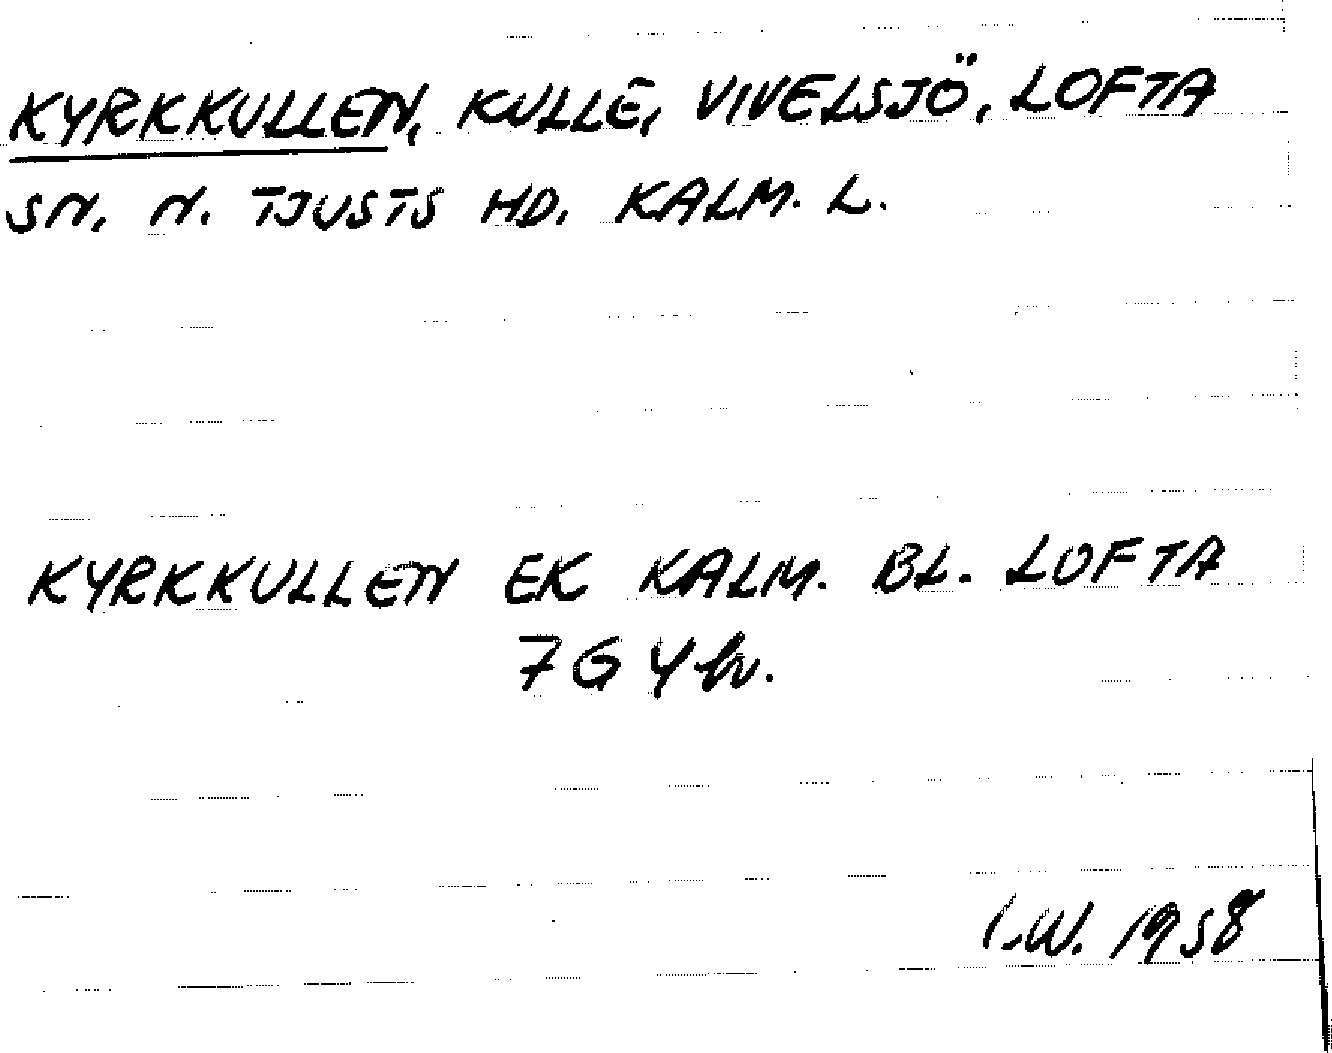 KYRKKULLEN, KULLE, VIVELSJÖ, LOFTA
SN. N. TJUSTS HD. KALM. L.
KYRKKULLEN EK KALM. BL. LOFTA
7G4hv.
I.W. 1958